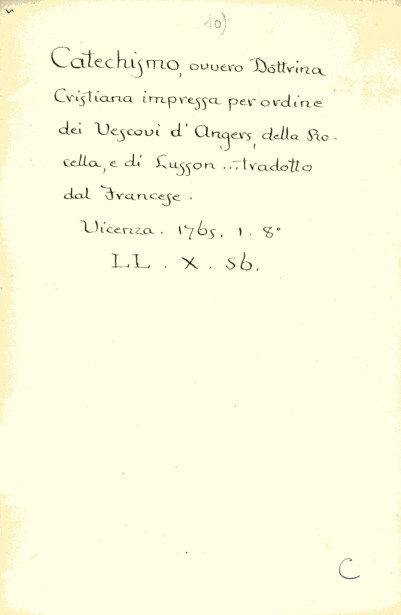 10)
Catechismo, ovvero Dottrina
Cristiana impressa per ordine
dei Vescovi d'Angers, della Ro-
cella, e di Lusson ... tradotto
dal Francese.
Vicenza. 1765. 1. 8°
LL. X. 56.
C